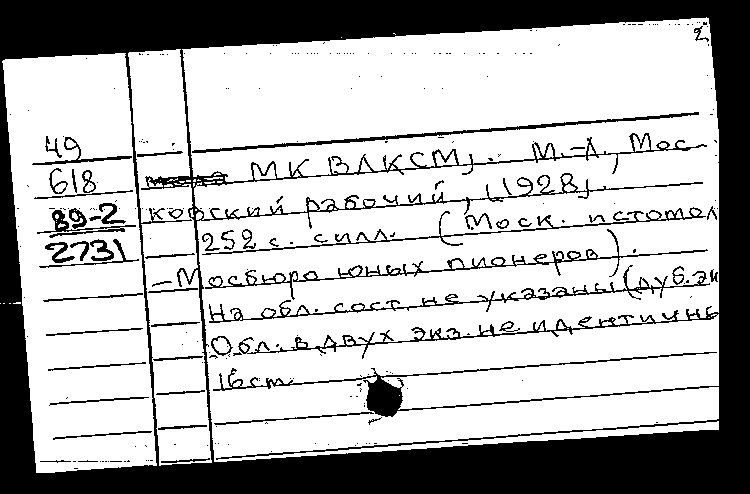 2
49
618
89-2
2731
МК ВЛКСМ]. М.-Л., Мос-
ковский рабочий, [1928].
252 с. с илл. (Моск. истомол
-Мосбюро юных пионеров).
На обл. сост. не указаны (дуб. эк
Обл. в двух экз. не идентичны
16 см.